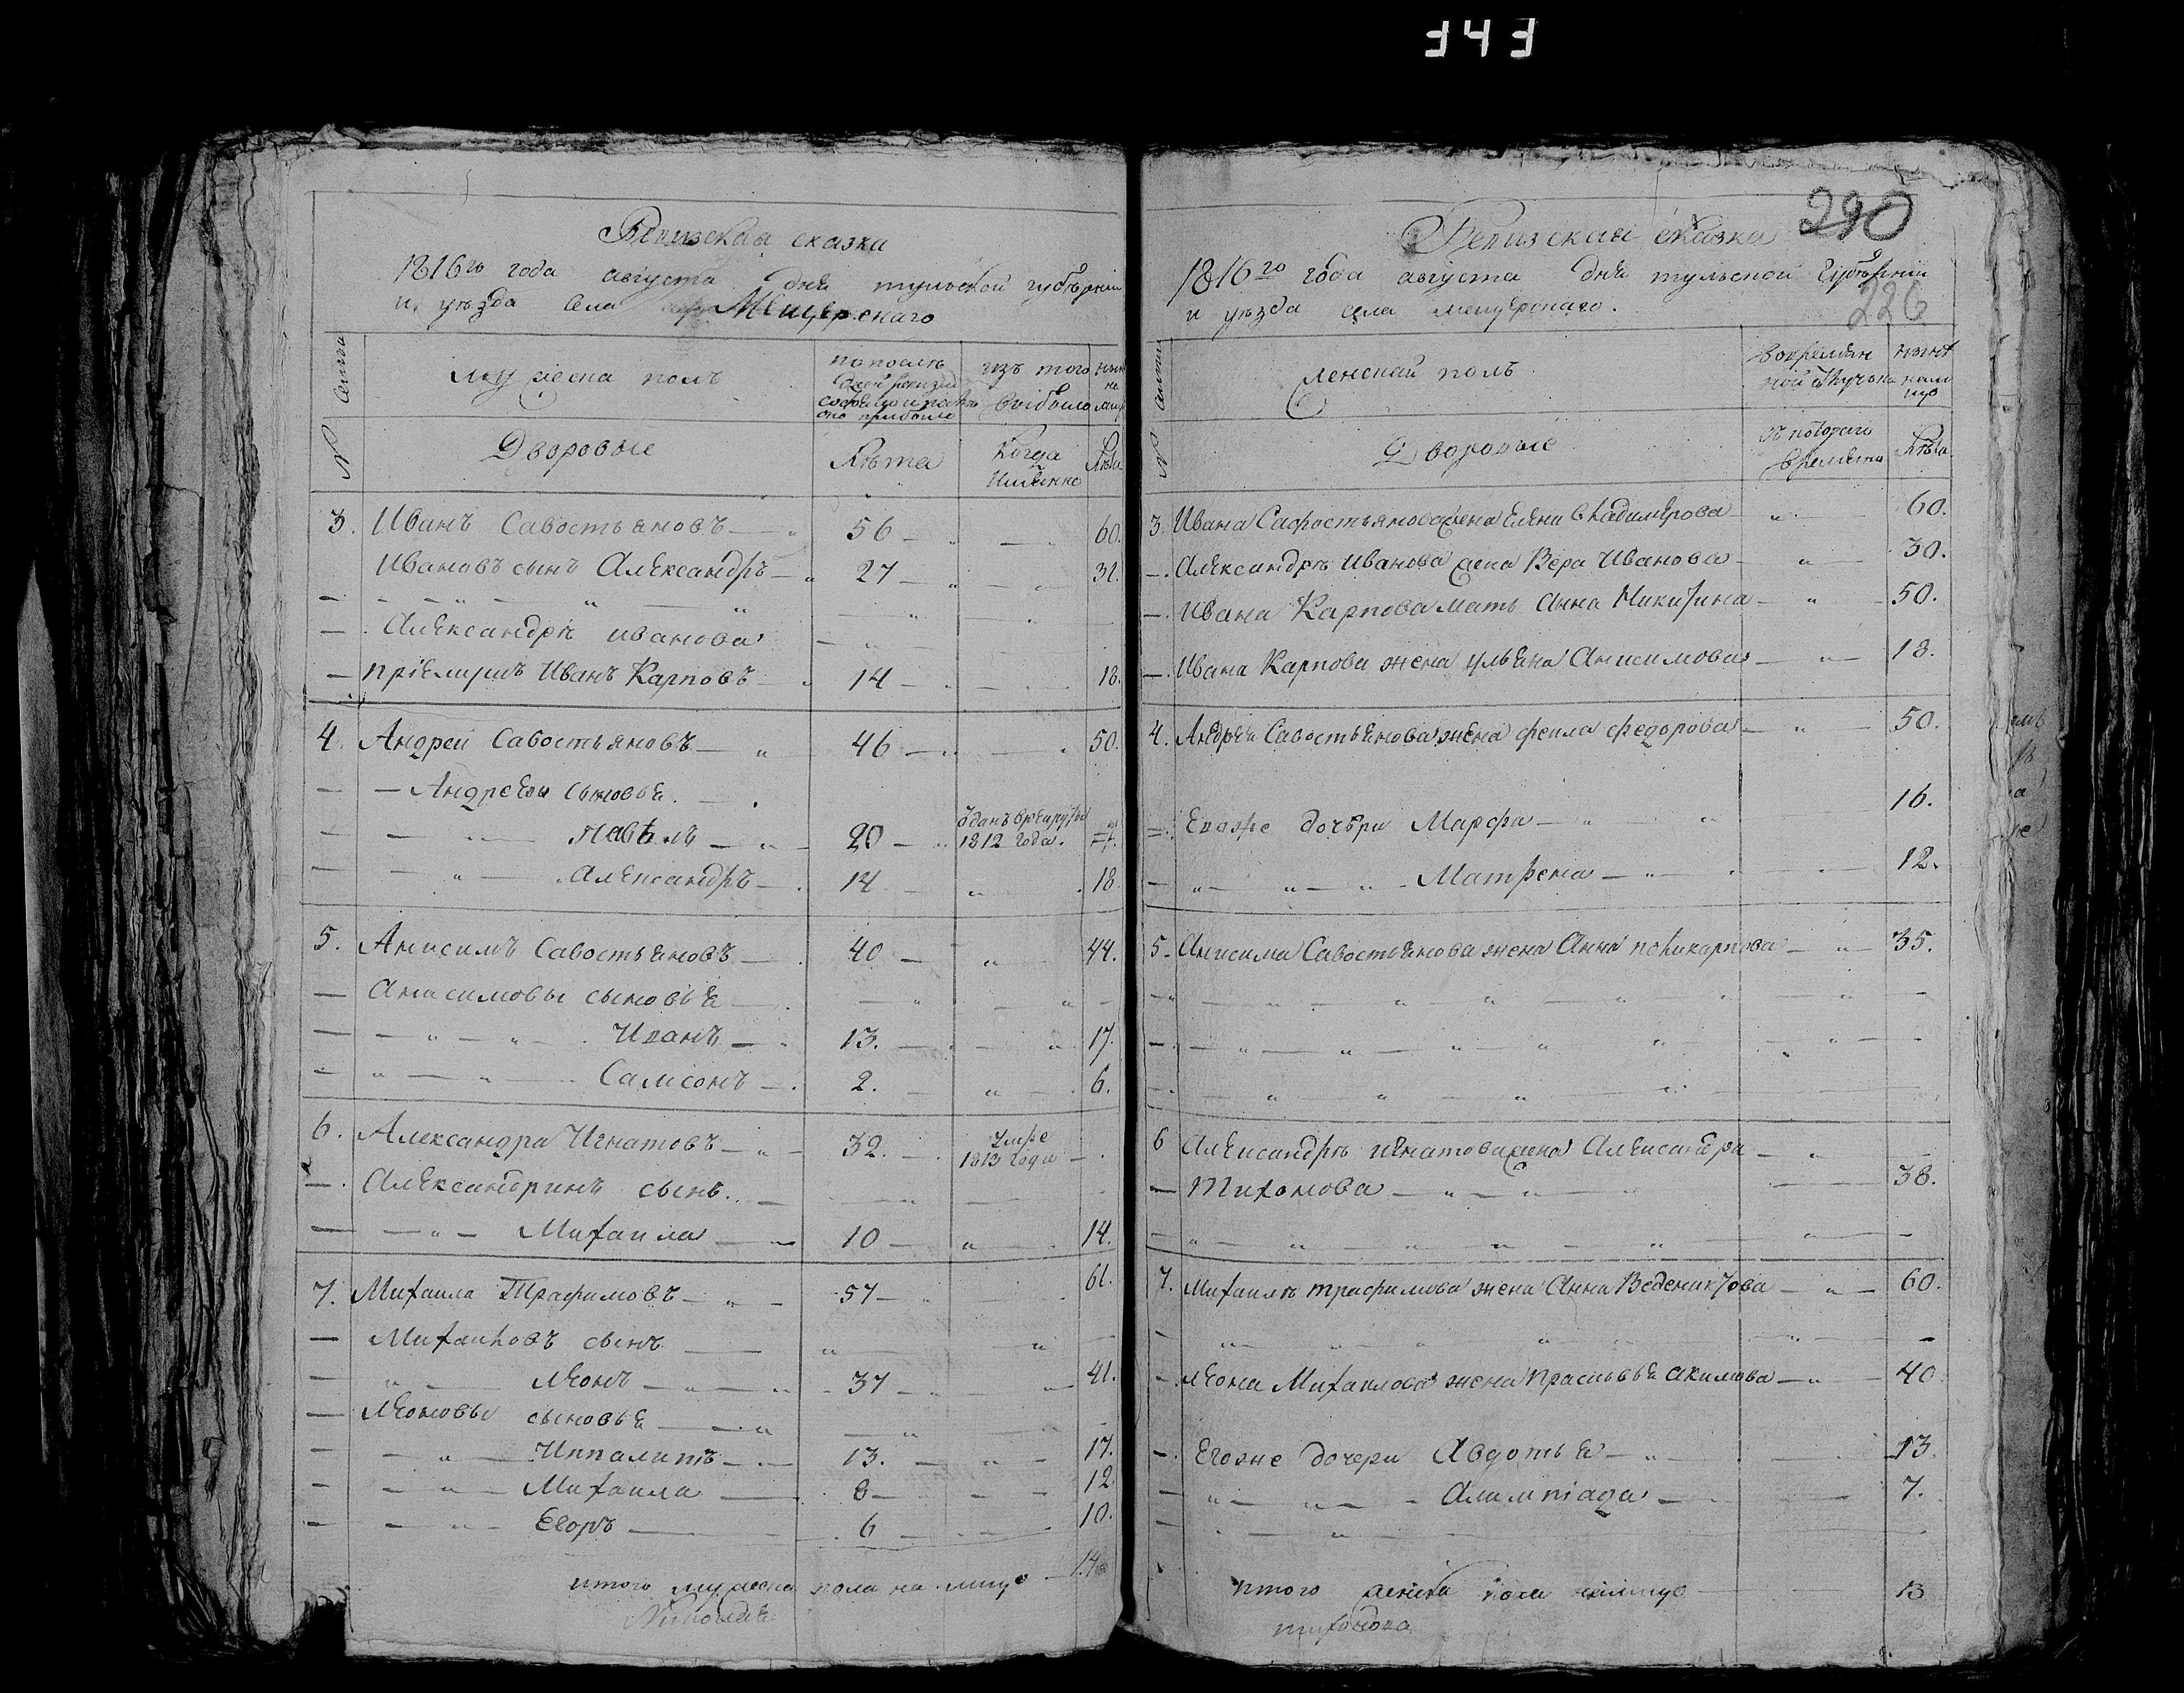 343
Ревизская сказка
1816го года августа дня тульской губерніи
и уѣзда села Мещерскаго
семьи
мужеска полъ
изъ того
выбыло
№
Дворовые
Лѣта
Когда
Имѣнно
Лѣта
3. Иванъ Савостьяновъ 56 60.
Ивановъ сынъ Александръ 27 31.
Александръ иванова
пріемышъ Иванъ Карповъ 14 18.
4. Андрей Савостьяновъ 46 50.
Андреевы сыновья
Павелъ 20 1812 года.
Александръ 14 18
5. Анисимъ Савостьяновъ 40 44.
Анисимовы сыновья
Иванъ 13. 17.
Самсонъ 2. 6.
6. Александра Игнатовъ 32. умре 1813 года
Александринъ сынъ
Михаила 10 14.
7. Михаила Трафимовъ 57 61.
Михаиловъ сынъ
Леонъ 37 41.
Леоновы сыновья
Иппалитъ 13. 17.
Михаила 8 12
Егоръ 6 10.
итого мужеска пола на лицо 14
290
Ревизская сказка
1816го года августа дня тульской губерніи
226
и уѣзда села мещерскаго.
семьи
женскай полъ
№
Дворовые
съ котораго
времѣни
Лѣта
3. Ивана Сафостьянова жена Елена владимерова 60.
Александръ Иванова жена Вера Иванова 30.
Ивана Карпова мать Анна Никитина 50.
Ивана Карпова жена ульена Анисимова 18.
4. Андрея Савостьянова жена феила федорова 50.
Евоже дочѣри Марфа 16.
Матрена 12.
5. Анисима Савостьянова жена Анна поликарпова 35.
6 Александръ игнатова жена Александра
Тихонова 38.
7. Михаилъ трафимова жена Анна Веденихтова 60.
леона Михаилова жена прасковья акимова 40
Егоже дочери Авдотья 13.
Алимпіада 7.
итого женска пола налицо 13
тихонова